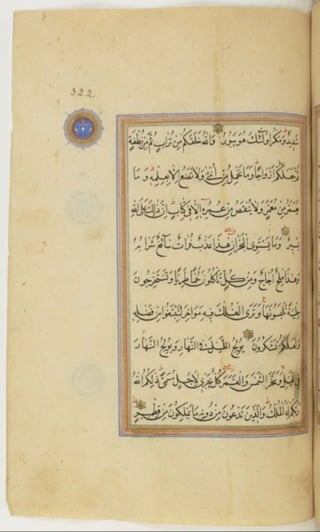 322
شَدِيدٌ وَمَكْرُ اُولٰئِكَ هُوَ يَبُورُ وَاللهُ خَلَقَكُمْ مِنْ تُرَابٍ ثُمَّ مِنْ نُطْفَةٍ
ثُمَّ جَعَلَكُمْ اَزْوَاجًا وَمَا تَحْمِلُ مِنْ اُنْثٰى وَلَا تَضَعُ اِلَّا بِعِلْمِهِ وَمَا
يُعَمَّرُ مِنْ مُعَمَّرٍ وَلَا يُنْقَصُ مِنْ عُمُرِهِ اِلَّا فِى كِتَابٍ اِنَّ ذٰلِكَ عَلَى اللهِ
يَسِيرٌ وَمَا يَسْتَوِى الْبَحْرَانِ هٰذَا عَذْبٌ فُرَاتٌ سَائِغٌ شَرَابُهُ
وَهٰذَا مِلْحٌ اُجَاجٌ وَمِنْ كُلٍّ تَاْكُلُونَ لَحْمًا طَرِيًّا وَتَسْتَخْرِجُونَ
حِلْيَةً تَلْبَسُونَهَا وَتَرَى الْفُلْكَ فِيهِ مَوَاخِرَ لِتَبْتَغُوا مِنْ فَضْلِهِ
وَلَعَلَّكُمْ تَشْكُرُونَ يُولِجُ اللَّيْلَ فِى النَّهَارِ وَيُولِجُ النَّهَارَ
فِى اللَّيْلِ وَسَخَّرَ الشَّمْسَ وَالْقَمَرَ كُلٌّ يَجْرِى لِاَجَلٍ مُسَمًّى ذٰلِكُمُ اللهُ
رَبُّكُمْ لَهُ الْمُلْكُ وَالَّذِينَ تَدْعُونَ مِنْ دُونِهِ مَا يَمْلِكُونَ مِنْ قِطْمِيرٍ